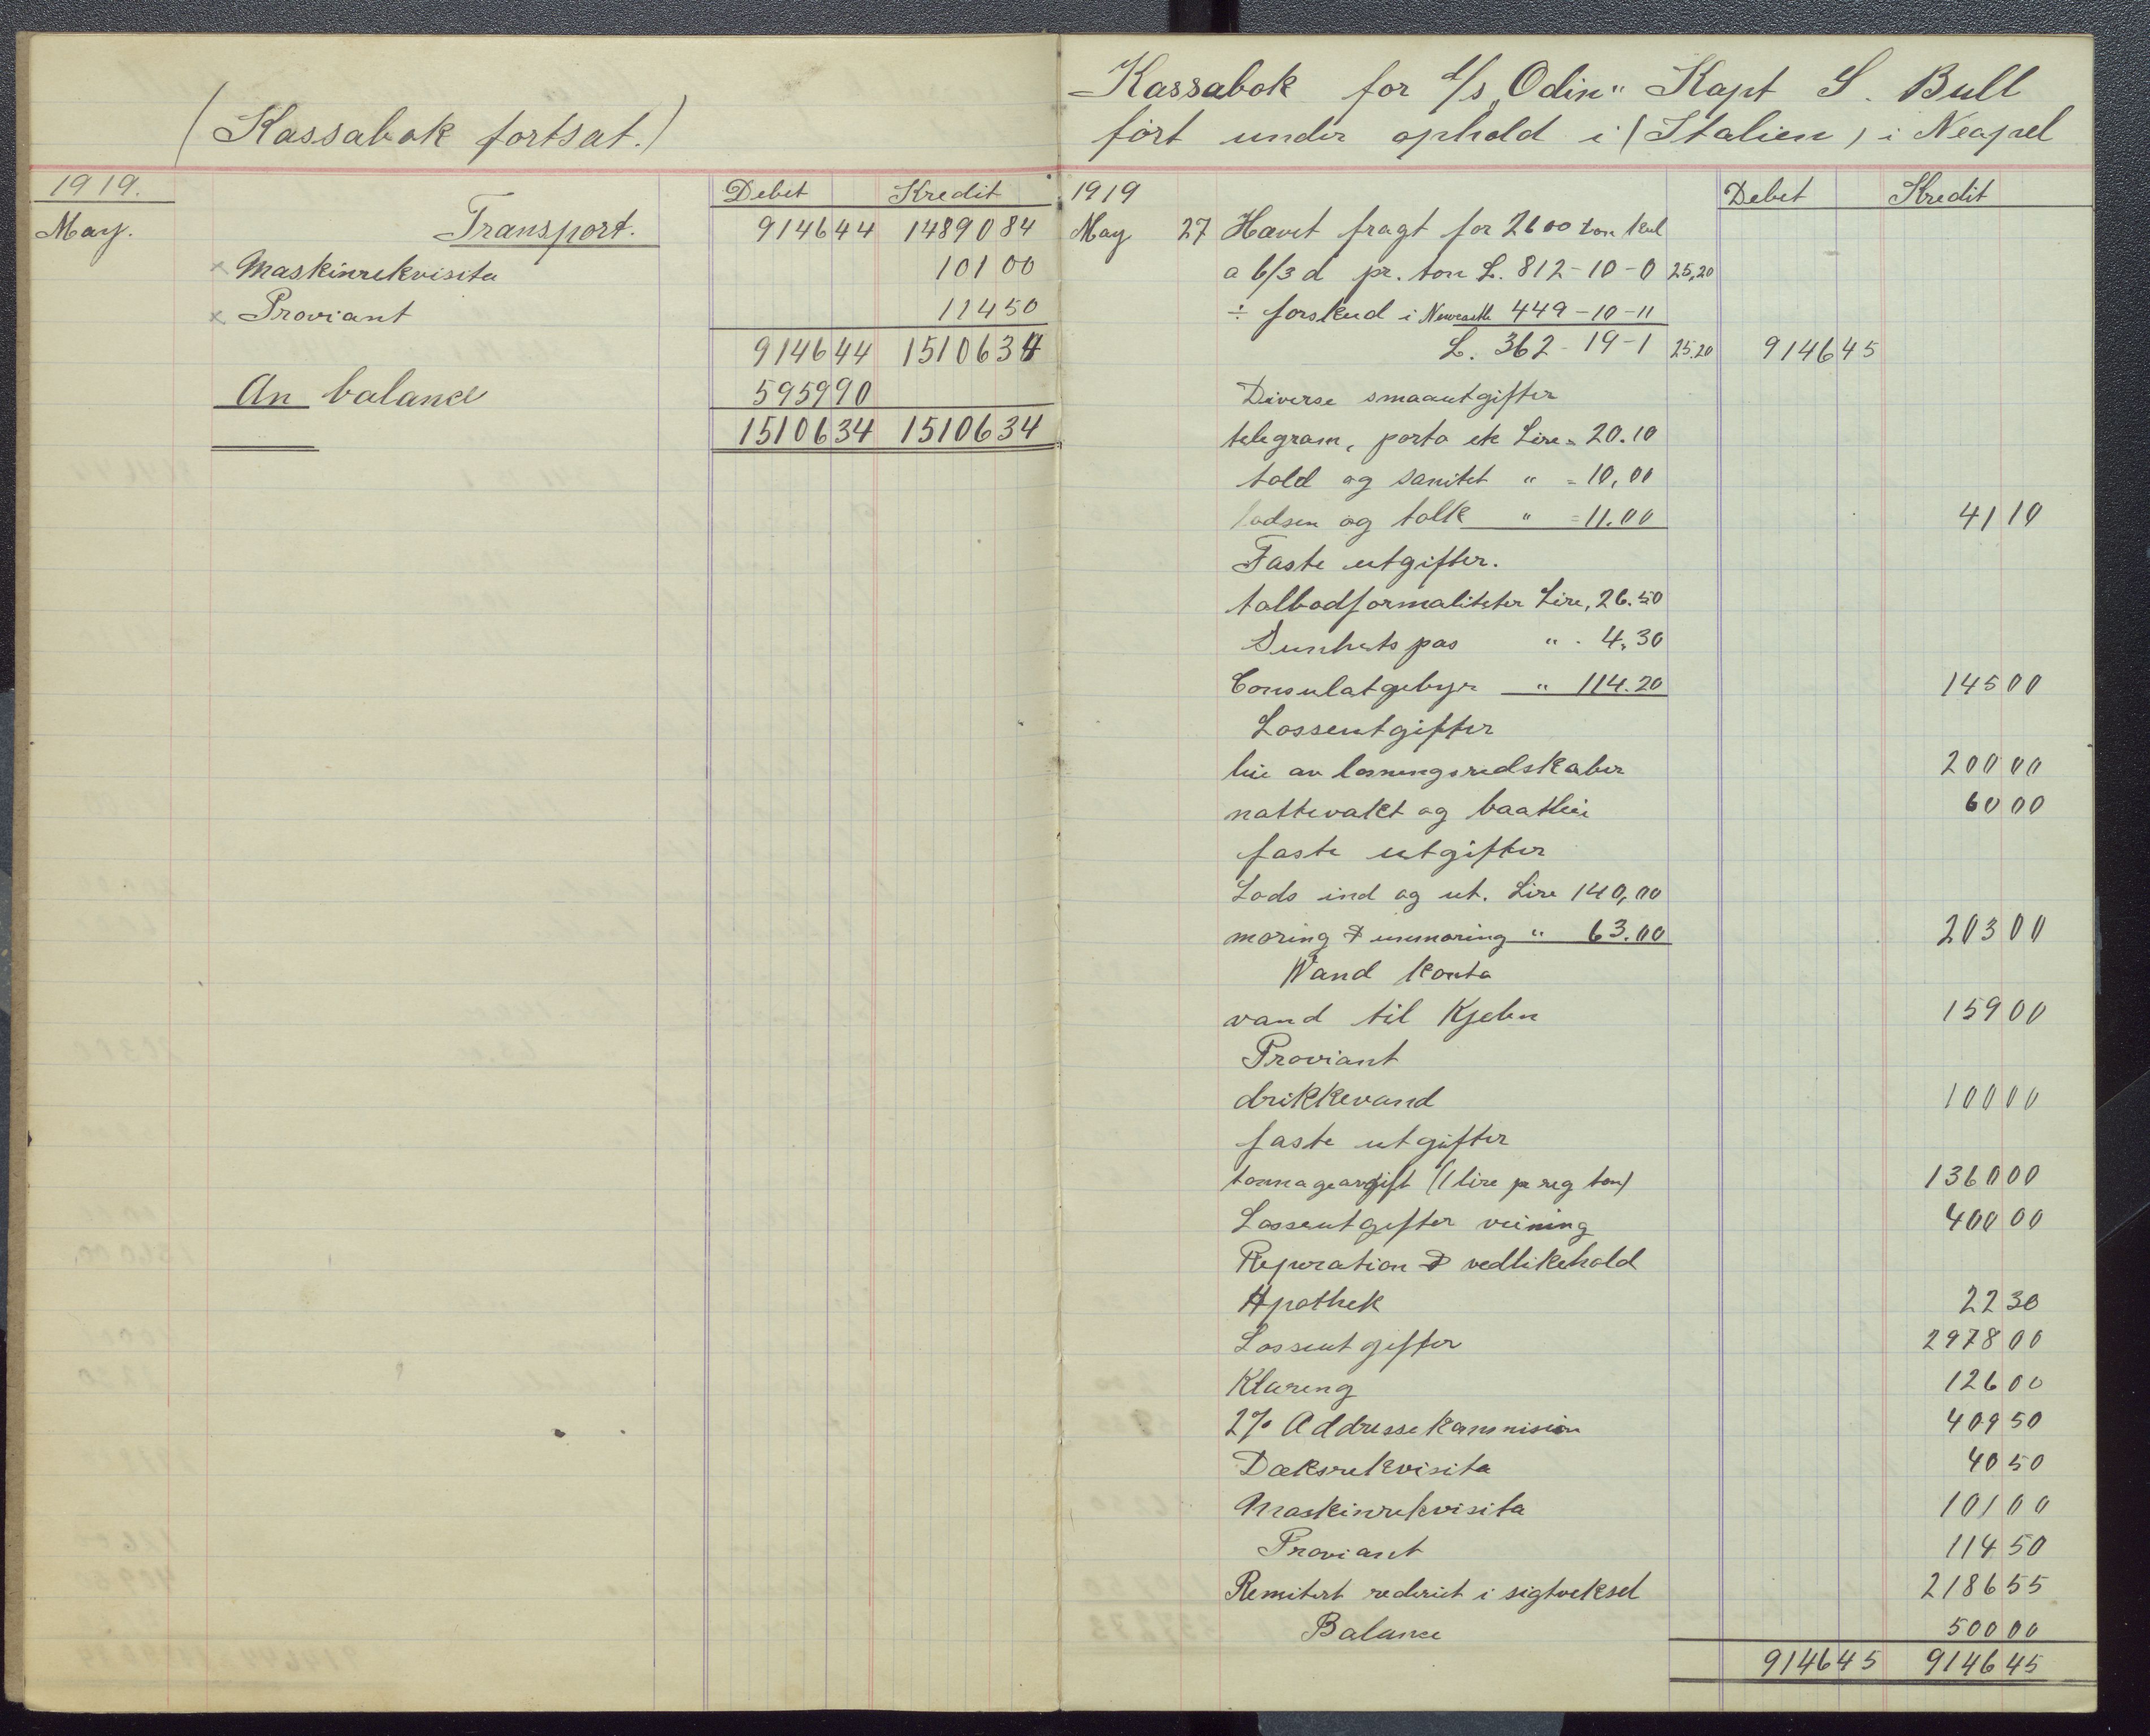 (Kassabok fortsat.)
1919. Debet Kredit
May. Transport. 9146 44 14890 84
× Maskinrekvisita 101 00
× Proviant 114 50
9146 44 15106 34
An balance 5959 90
15106 34 15106 34
Kassabok for d/s „Odin" Kapt S. Bull
ført under ophold i (Italien) i Neapel
1919 Debet Kredit
May 27 Havet fragt for 2600 ton kul
a 6/3 d pr. ton L. 812-10-0 25,20
÷ forskud i Newcastle 449-10-11
L. 362-19-1 25.20 9146 45
Diverse smaautgifter
telegram, porto etc Lire = 20.10
told og sanitet " = 10,00
lodsen og tolk " = 11.00 41 10
Faste utgifter.
tolbodformaliteter Lire, 26.50
Sunhets pas " . 4,30
Consulatgebyr " 114.20 145 00
Losseutgifter
leie av losningsredskaber 200 00
nattevakt og baatleie 60 00
faste utgifter
Lods ind og ut. Lire 140,00
moring & unmoring " 63.00 203 00
Vand konto
vand til Kjelen 159 00
Proviant
drikkevand 100 00
faste utgifter
tonnageavgift (1 lire pr reg ton) 1360 00
Losseutgifter veining 400 00
Reperation & vedlikehold
Apothek 22 30
Losseutgifter 2978 00
Klarering 126 00
2% Addressekommision 409 50
Dæksrekvisita 40 50
Maskinrekvisita 101 00
Proviant 114 50
Remitert rederiet i sigtveksel 2186 55
Balance 500 00
9146 45 9146 45